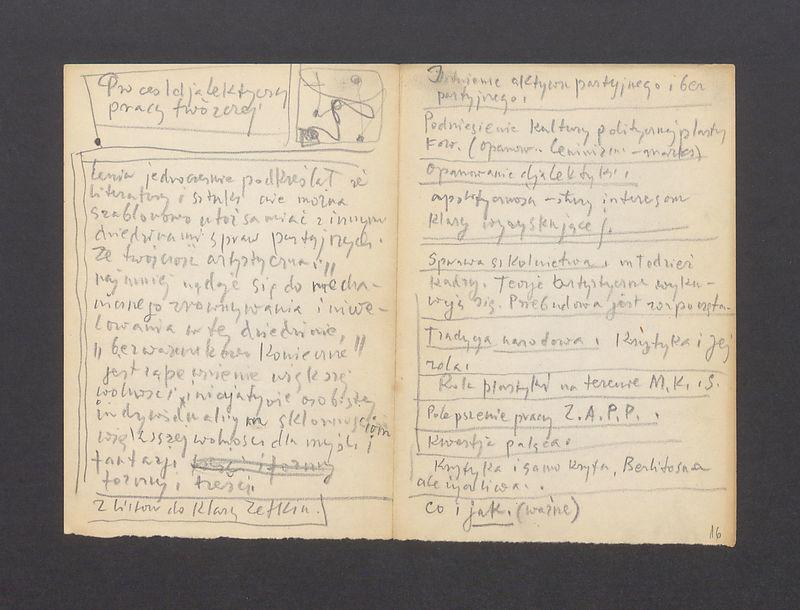 Proces djalektyczny
pracy twórczej
Lenin jednocześnie podkreślał że
literatury i sztuki nie można
szablonowo utożsamiać z innym
dziedzinami spraw partyjnych.
że twórczość artystyczna "
najmniej nadaje się do mecha-
nicznego zrównywania i niwe-
lowania w tej dziedzinie,
" bezwarunkowo konieczne "
jest zapewnienie większej
wolności inicjatywie osobistej
indywidualnym skłonnościom
większej wolności dla myśli i
fantazji treści i formy
formy i treści
z listów do Klary Zetkin.
aktywu partyjnego i bez
partyjnego.
Podniesienie kultury politycznej plastyk
Kow. (opanow. leninizmu - marks)
opanowanie djalektyki.
apolityczność - służy interesom
klasy wyzyskującej.
Sprawa szkolnictwa i młodzież
kadry. Teorje artystyczne wyku-
wują się. Przebudowa jest rozpoczęta.
Tradycja narodowa. Krytyka i jej
rola.
Rola plastyki na terenie M.K. i S.
Polepszenie pracy Z.A.P.P.
Kwestja paląca.
Krytyka i samokryta, Berlitosna
ale życzliwa.
co i jak. (ważne)
16